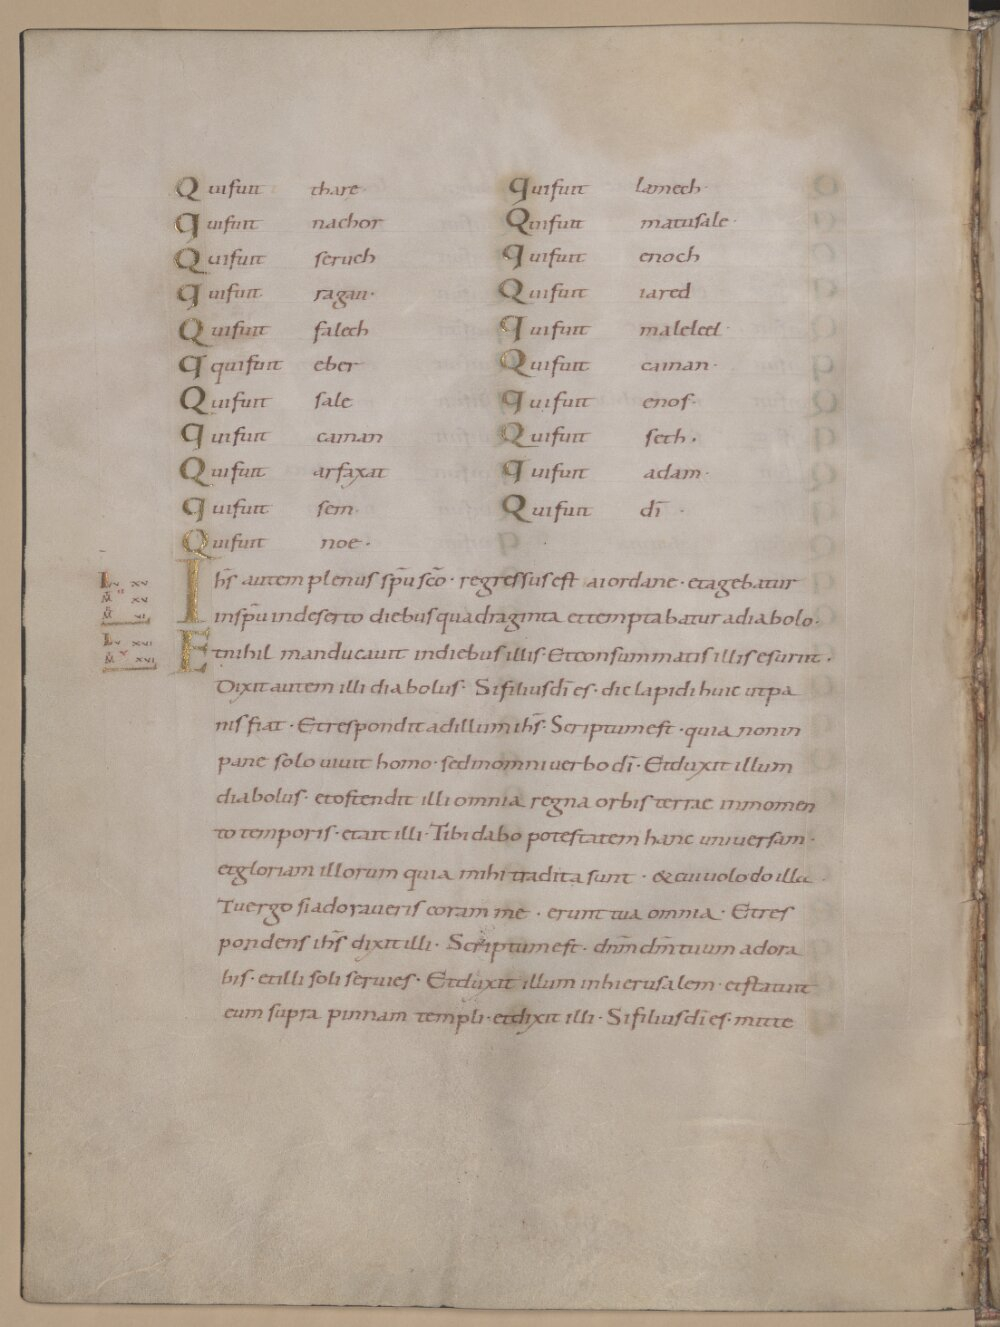 Qui fuit thare·
qui fuit nachor
Qui fuit seruch
qui fuit ragau·
Qui fuit falech
q qui fuit eber
Qui fuit sale
qui fuit cainan
Qui fuit arfaxat
qui fuit sem·
Qui fuit noe·
qui fuit lamech·
Qui fuit matusale·
qui fuit enoch
Qui fuit iared
qui fuit maleleel·
Qui fuit cainan·
qui fuit enos·
Qui fuit seth·
qui fuit adam·
Qui fuit dī·
Ihs̄ autem plenus sp̄u sc̄o· regressus est a iordane· et agebatur
in sp̄u in deserto diebus quadraginta et temptabatur a diabolo·
Et nihil manducauit in diebus illis· Et consummatis illis esuriit·
Dixit autem illi diabolus· Si filius dī es· dic lapidi huic ut pa
nis fiat· Et respondit ad illum ihs̄· Scriptum est· quia non in
pane solo uiuit homo· sed in omni uerbo dī· Et duxit illum
diabolus· et ostendit illi omnia regna orbis terrae in momen
to temporis· et ait illi· Tibi dabo potestatem hanc uniuersam·
et gloriam illorum quia mihi tradita sunt· & cui uolo do illa·
Tu ergo si adoraueris coram me· erunt tua omnia· Et res
pondens ihs̄ dixit illi· Scriptum est· dn̄m dm̄ tuum adora
bis· et illi soli seruies· Et duxit illum in hierusalem· et statuit
eum supra pinnam templi· et dixit illi· Si filius dī es· mitte